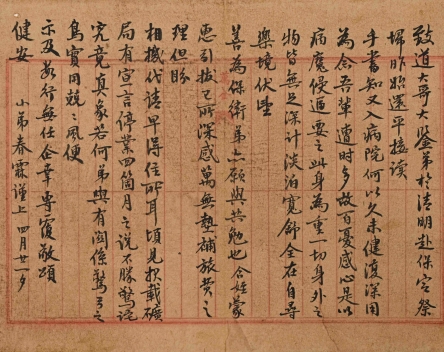 致道大哥大鑒弟於清明赴保定祭
埽昨始還平接讀
手書知又入病院何以久未健復深用
為念吾輩遭時多故百憂感心是以
病魔侵逼要之此身為重一切身外之
物皆無足深計淡泊寬飾全在自尋
樂境伏惟
善為保衛弟亦願與共勉也令姪蒙
惠引拔已所深感萬無墊補旅費之
理但盼
相機代請早得住所耳頃見報載礦
局有宣言停業四箇月之說不勝驚詫
究竟真象若何弟與有關係驚弓之
鳥實用兢兢風便
示及為行無任企幸專覆敬頌
健安
小弟春霖謹上 四月廿一夕